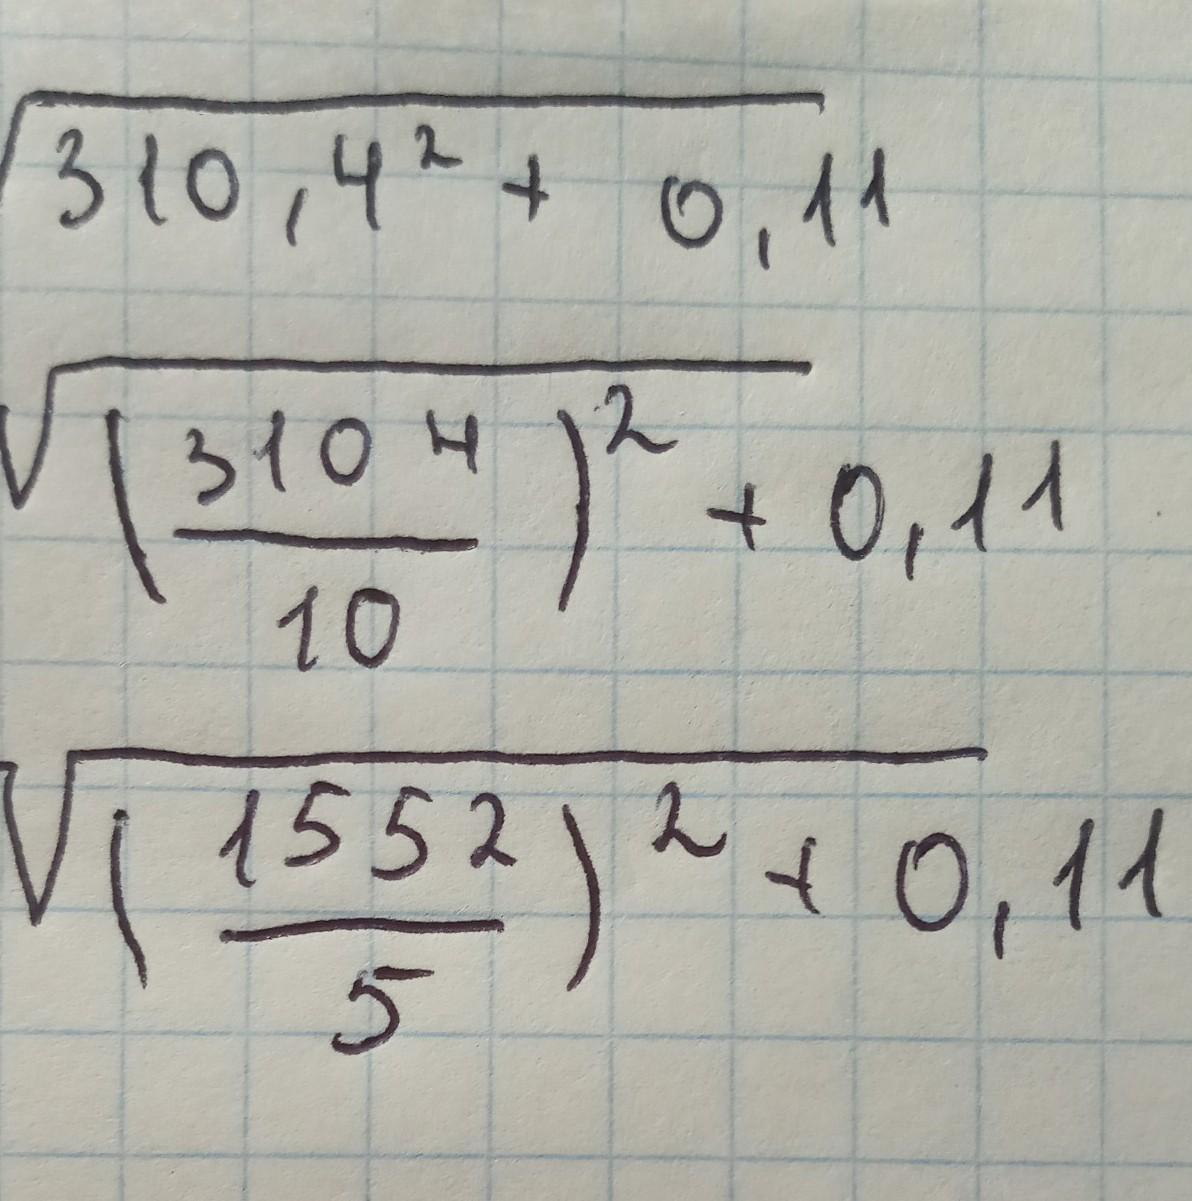 √310,4² + 0,11
√(3104/10)² + 0,11
√(1552/5)² + 0,11